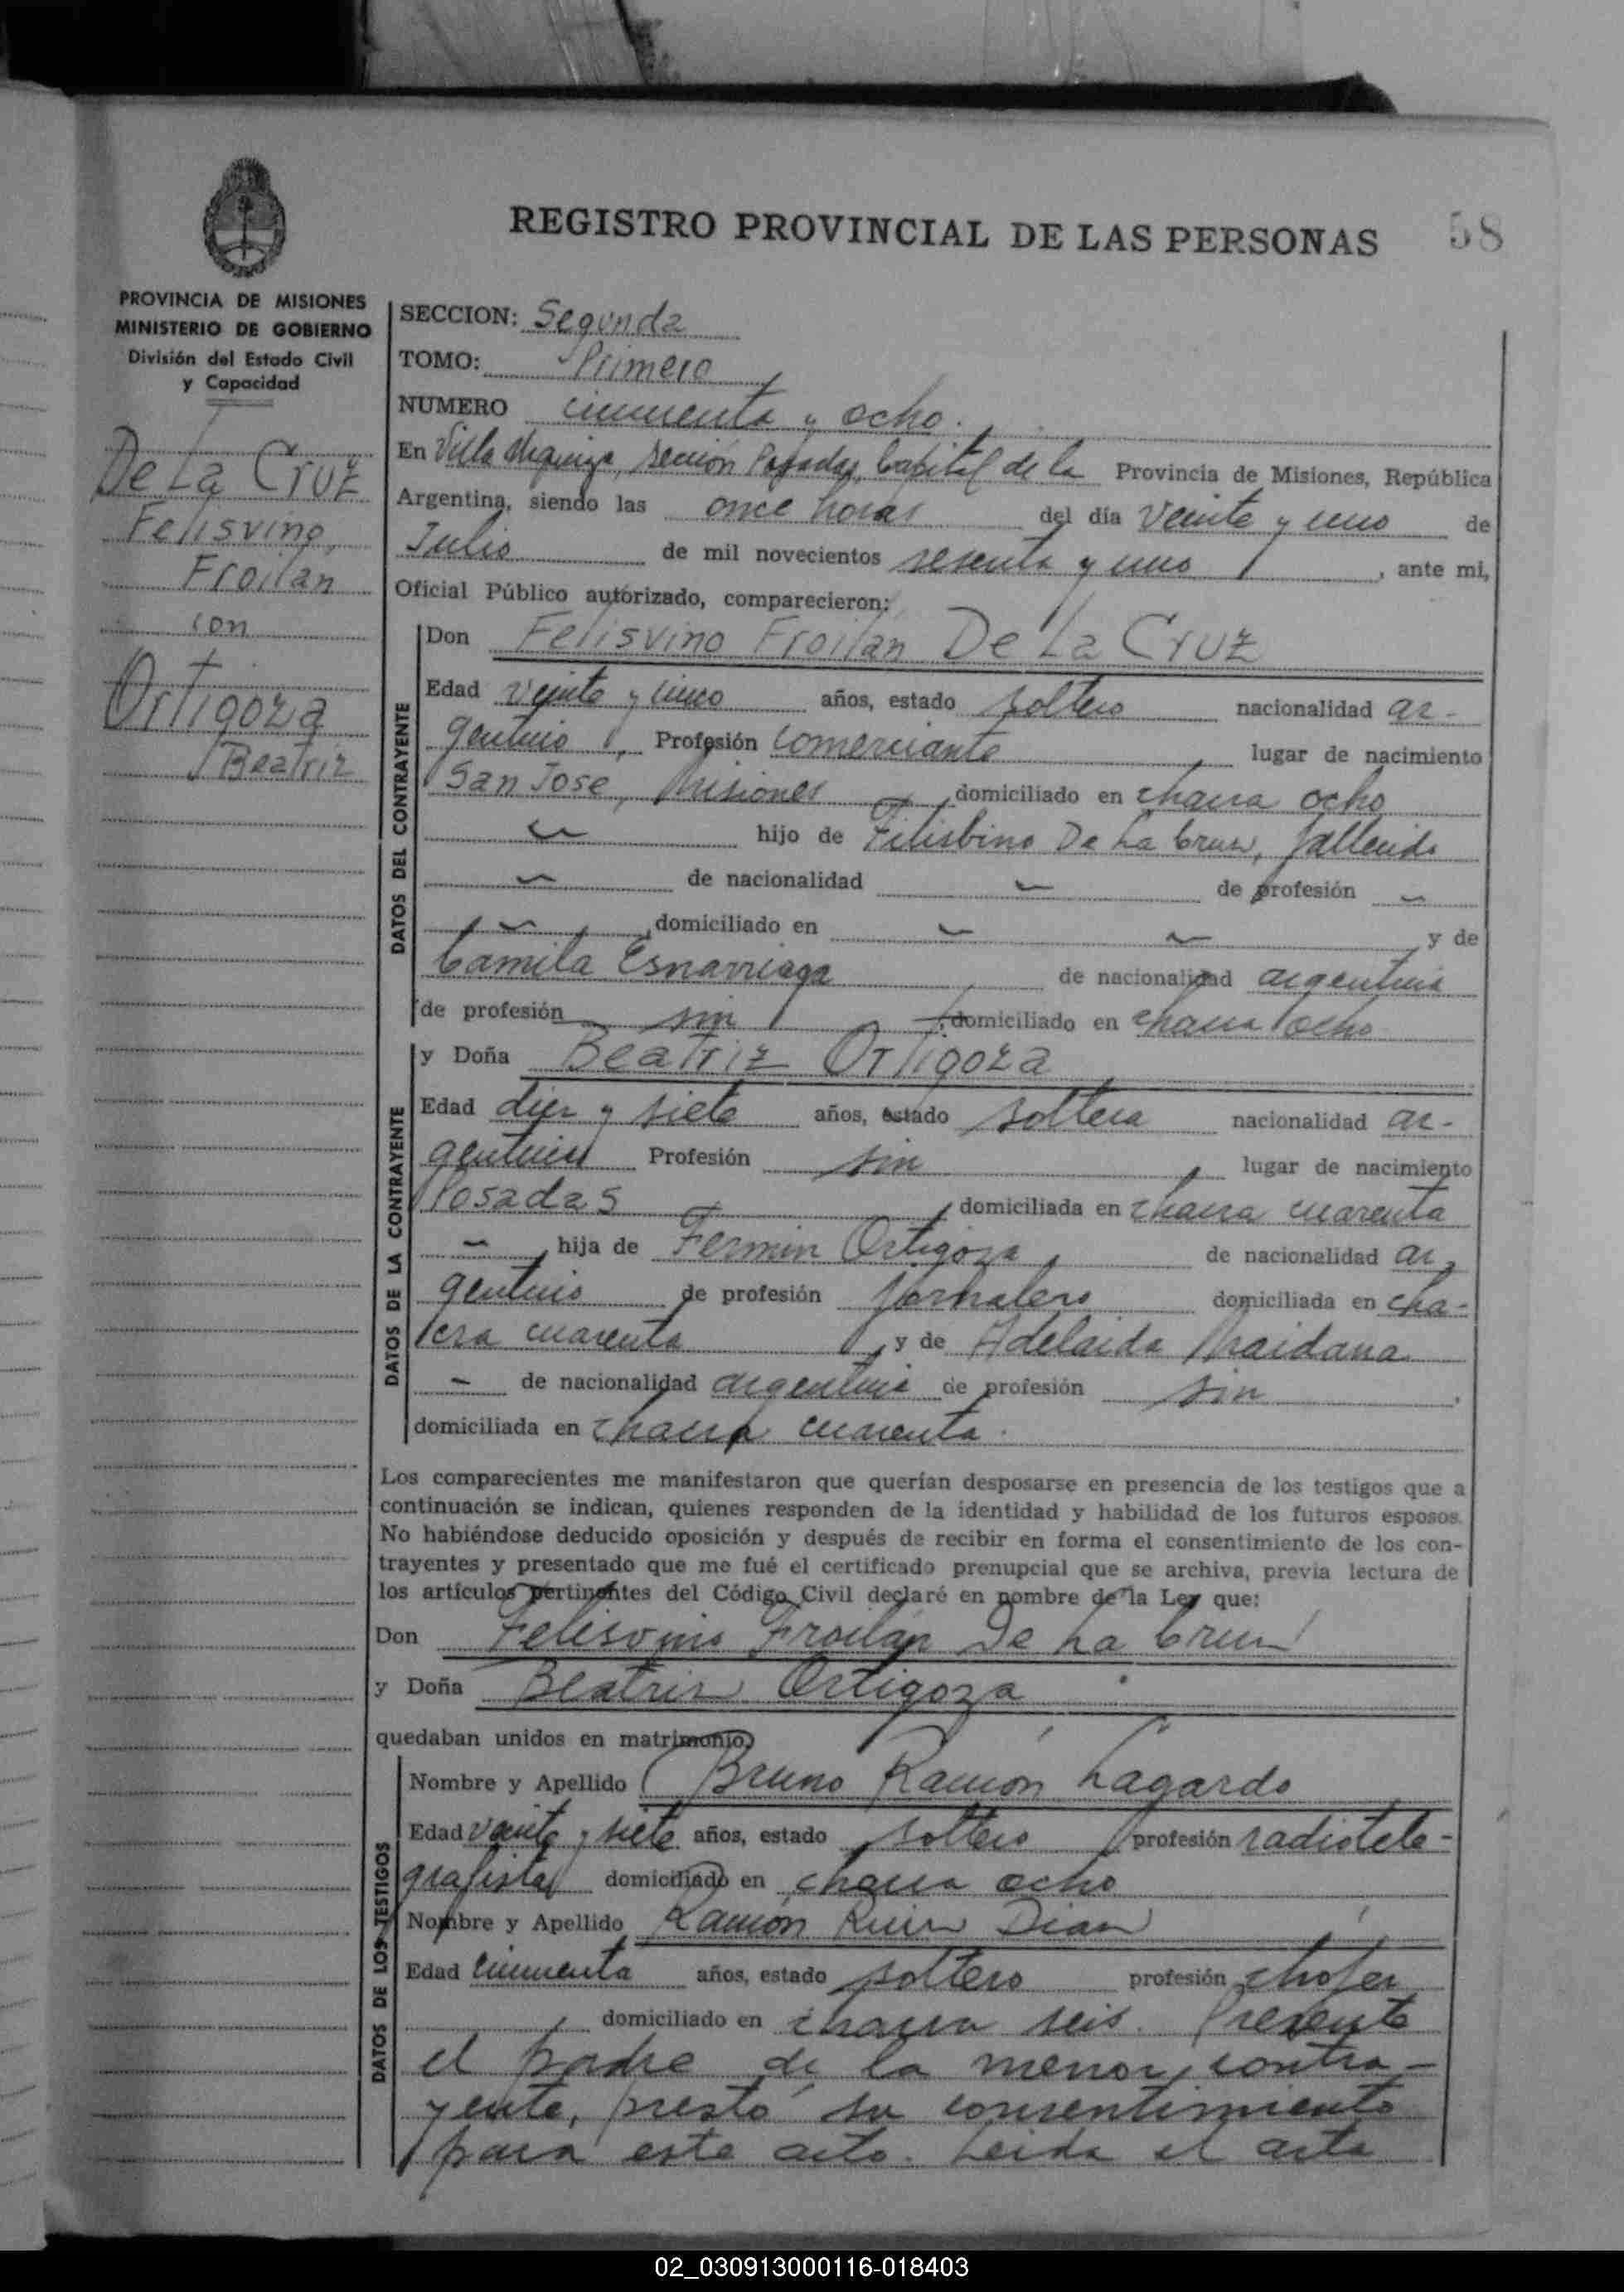 REGISTRO PROVINCIAL DE LAS PERSONAS 58
PROVINCIA DE MISIONES
MINISTERIO DE GOBIERNO
División del Estado Civil
y Capacidad
De La Cruz
Felisvino
Froilan
con
Ortigoza
Beatriz
SECCION: Segunda
TOMO: Primero
NUMERO cincuenta y ocho.
En Villa Urquiza, sección Posadas, Capital de la Provincia de Misiones, República
Argentina, siendo las once horas del día veinte y uno de
Julio de mil novecientos sesenta y uno, ante mi,
Oficial Público autorizado, comparecieron:
DATOS DEL CONTRAYENTE
Don Felisvino Froilan De La Cruz
Edad veinte y cinco años, estado soltero nacionalidad ar-
gentino, Profesión comerciante lugar de nacimiento
San Jose, Misiones, domiciliado en chacra ocho
hijo de Filisbino De La Cruz, fallecido
de nacionalidad de profesión
domiciliado en y de
Camila Esnarriaga de nacionalidad argentina
de profesión sin, domiciliado en chacra ocho
DATOS DE LA CONTRAYENTE
y Doña Beatriz Ortigoza
Edad diez y siete años, estado soltera nacionalidad ar-
gentina Profesión sin, lugar de nacimiento
Posadas, domiciliada en chacra cuarenta
, hija de Fermin Ortigoza, de nacionalidad ar-
gentino de profesión jornalero domiciliada en cha-
cra cuarenta, y de Adelaida Maidana
de nacionalidad argentina de profesión sin,
domiciliada en chacra cuarenta.
Los comparecientes me manifestaron que querían desposarse en presencia de los testigos que a
continuación se indican, quienes responden de la identidad y habilidad de los futuros esposos.
No habiéndose deducido oposición y después de recibir en forma el consentimiento de los con-
trayentes y presentado que me fué el certificado prenupcial que se archiva, previa lectura de
los artículos pertinentes del Código Civil declaré en nombre de la Ley que:
Don Felisvino Froilan De La Cruz
y Doña Beatriz Ortigoza
quedaban unidos en matrimonio,
DATOS DE LOS TESTIGOS
Nombre y Apellido Bruno Ramón Lagardo
Edad veinte y siete años, estado soltero profesión radiotele-
grafista domiciliado en chacra ocho
Nombre y Apellido Ramón Ruiz Diaz
Edad cincuenta años, estado soltero profesión chofer
, domiciliado en chacra seis. Presente
el padre de la menor contra-
yente, prestó su consentimiento
para este acto. Leida el acta
02_030913000116-018403